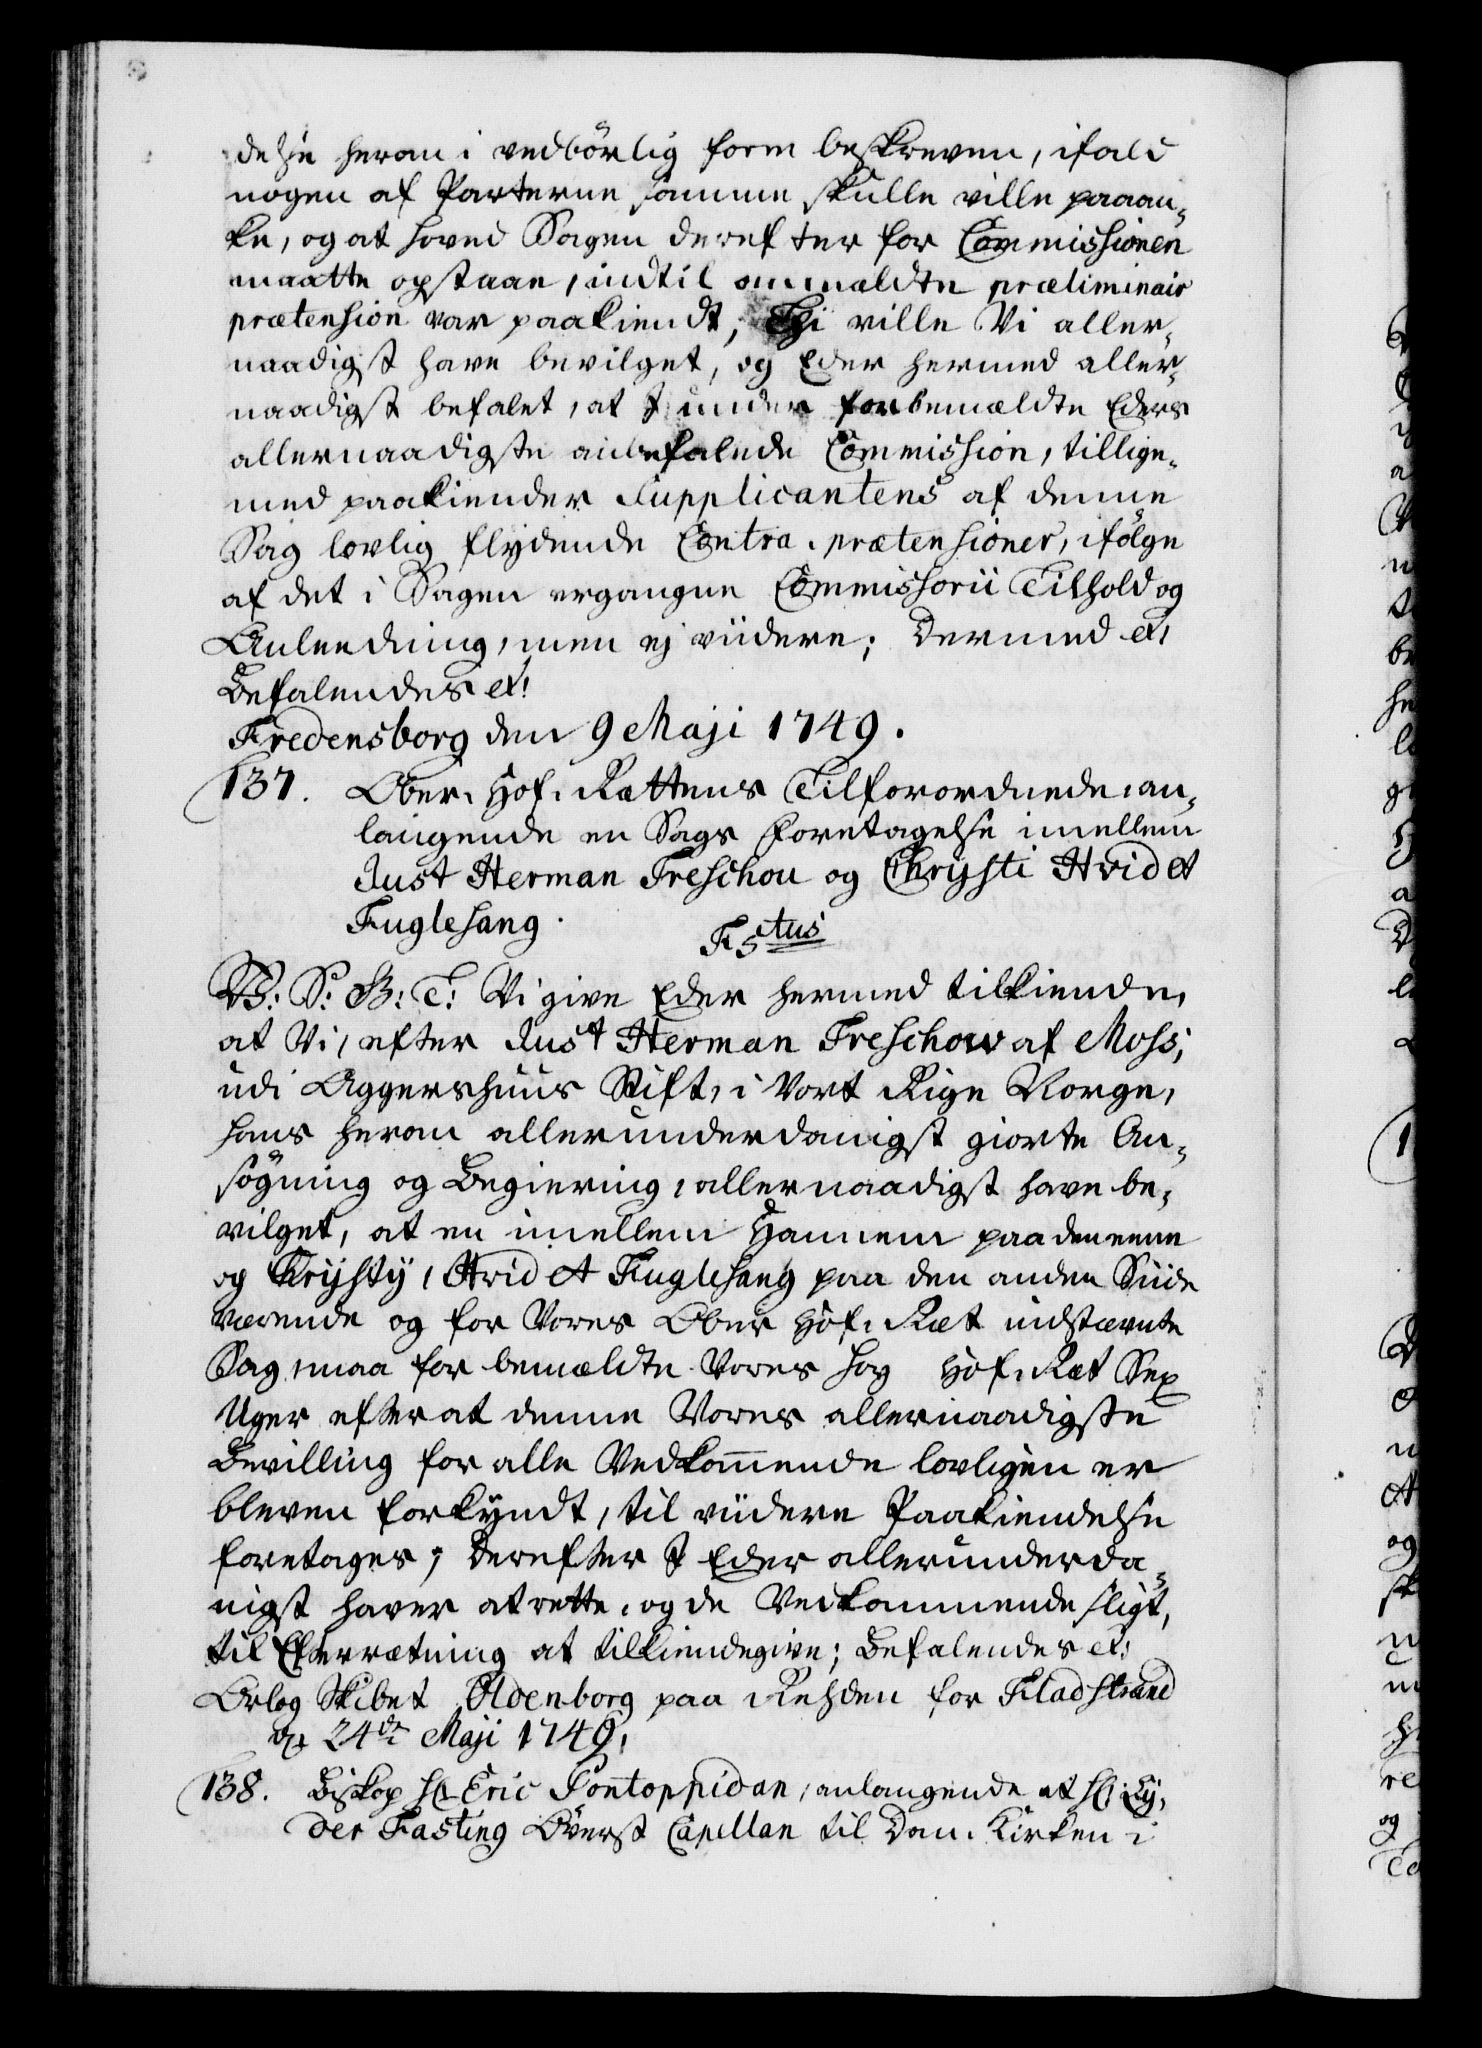 delse herom i vedbörlig form beskreven, ifald
nogen af Parterne samme skulle ville paaan-
ke, og at hoved Sagen derefter for Commissionen
maatte opstaae, indtil ommeldte præliminair
prætension var paakiendt; Thi ville Vi aller-
naadigst have bevilget, og Eder hermed aller-
naadigst befalet, at I under forbemældte Eders
allernaadigste anbefalede Commission, tillige-
med paakiender Supplicantens af denne
Sag lovlig flydende Contra-prætensioner, ifölge
af det i Sagen ergangne Commissorii Tilhold og
Anleedning, men ej viidere; Dermed etc.
Befalendes etc.
Fredensborg den 9 Maji 1749.
137. Ober-Hof-Rettens Tilforordnede, an-
langende en Sags Foretagelse imellem
Just Herman Treschou og Chrysti Hvid et
Fuglesang.
F5tus
V: S: G: T: Vi give Eder hermed tilkiende,
at Vi, efter Just Herman Treschow af Moss,
udi Aggershuus Stift, i Vort Rige Norge,
hans herom allerunderdanigst giorte An-
sögning og Begiering, allernaadigst have be-
vilget, at en imellem Hannem paa den eene
og Chrysty, Hvid et Fuglesang paa den anden Siide
værende og for Vores Ober Hof-Ræt indstævnte
Sag, maa for bemældte Vores Hof-Ræt Sex
Uger efter at denne Vores allernaadigste
Bevilling for alle Vedkommende lovligen er
bleven forkyndt, til viidere Paakiendelse
foretages; Derefter I Eder allerunderda-
nigst haver at rette, og de Vedkommende sligt,
til Efterrætning at tilkiendegive; Befalendes etc.
Orlog Skibet Oldenborg paa Rehden for Fladstrand
d. 24de Maji 1749.
138. Biskop Hr Eric Pontoppidan, anlangende at Hr: Ly-
der Fasting Överst Capellan til Dom-Kirken i